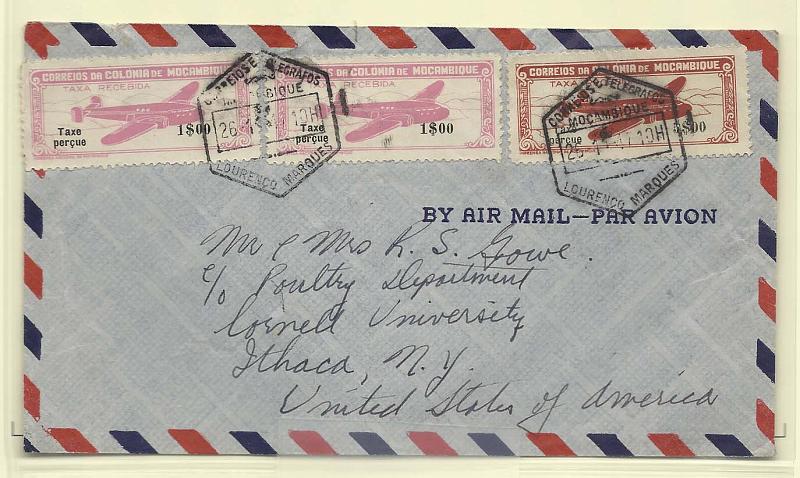 CORREIOS DA COLONIA DE MOCAMBIQUE
TAXA RECEBIDA
Taxe perçue
1$00
TAXA RECEBIDA
Taxe perçue
1$00
CORREIOS DA COLONIA DE MOCAMBIQUE
perçue
5$00
CORREIOS E TELEGRAFOS
MOÇAMBIQUE
LOURENÇO MARQUES
CORREIOS E TELEGRAFOS
MOÇAMBIQUE
LOURENÇO MARQUES
BY AIR MAIL—PAR AVION
Mr & Mrs R. S. Gowe.
c/o Poultry Department
Cornell University
Ithaca, N.Y.
United States of America